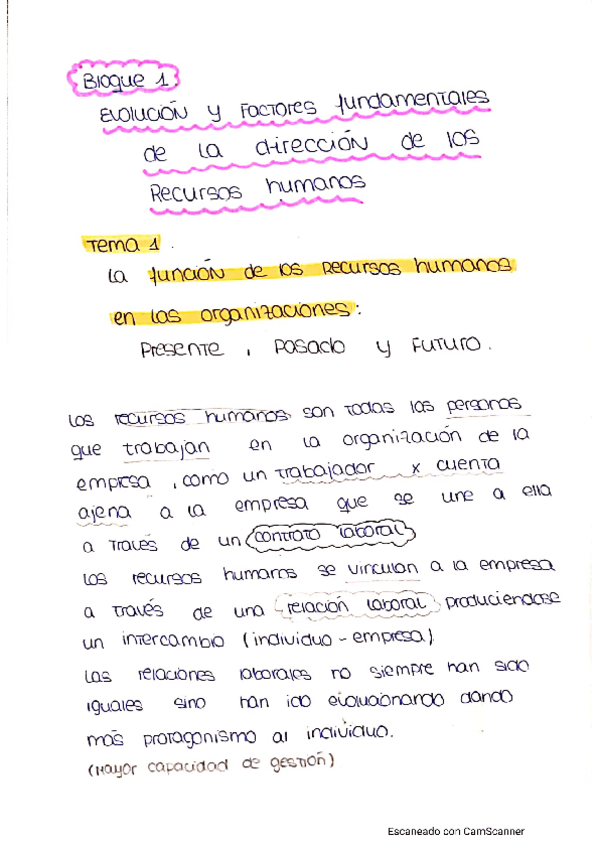 Bloque 1
Evolución y Factores fundamentales
de la dirección de los
Recursos humanos
Tema 1.
La función de los Recursos humanos
en las organizaciones:
Presente, Pasado y Futuro.
Los recursos humanos son todas las personas
que trabajan en la organización de la
empresa, como un trabajador x cuenta
ajena a la empresa que se une a ella
a través de un contrato laboral
Los recursos humanos se vinculan a la empresa
a través de una relación laboral produciendose
un intercambio (individuo - empresa)
Las relaciones laborales no siempre han sido
iguales sino han ido evolucionando dando
más protagonismo al individuo.
(Mayor capacidad de gestión)
Escaneado con CamScanner